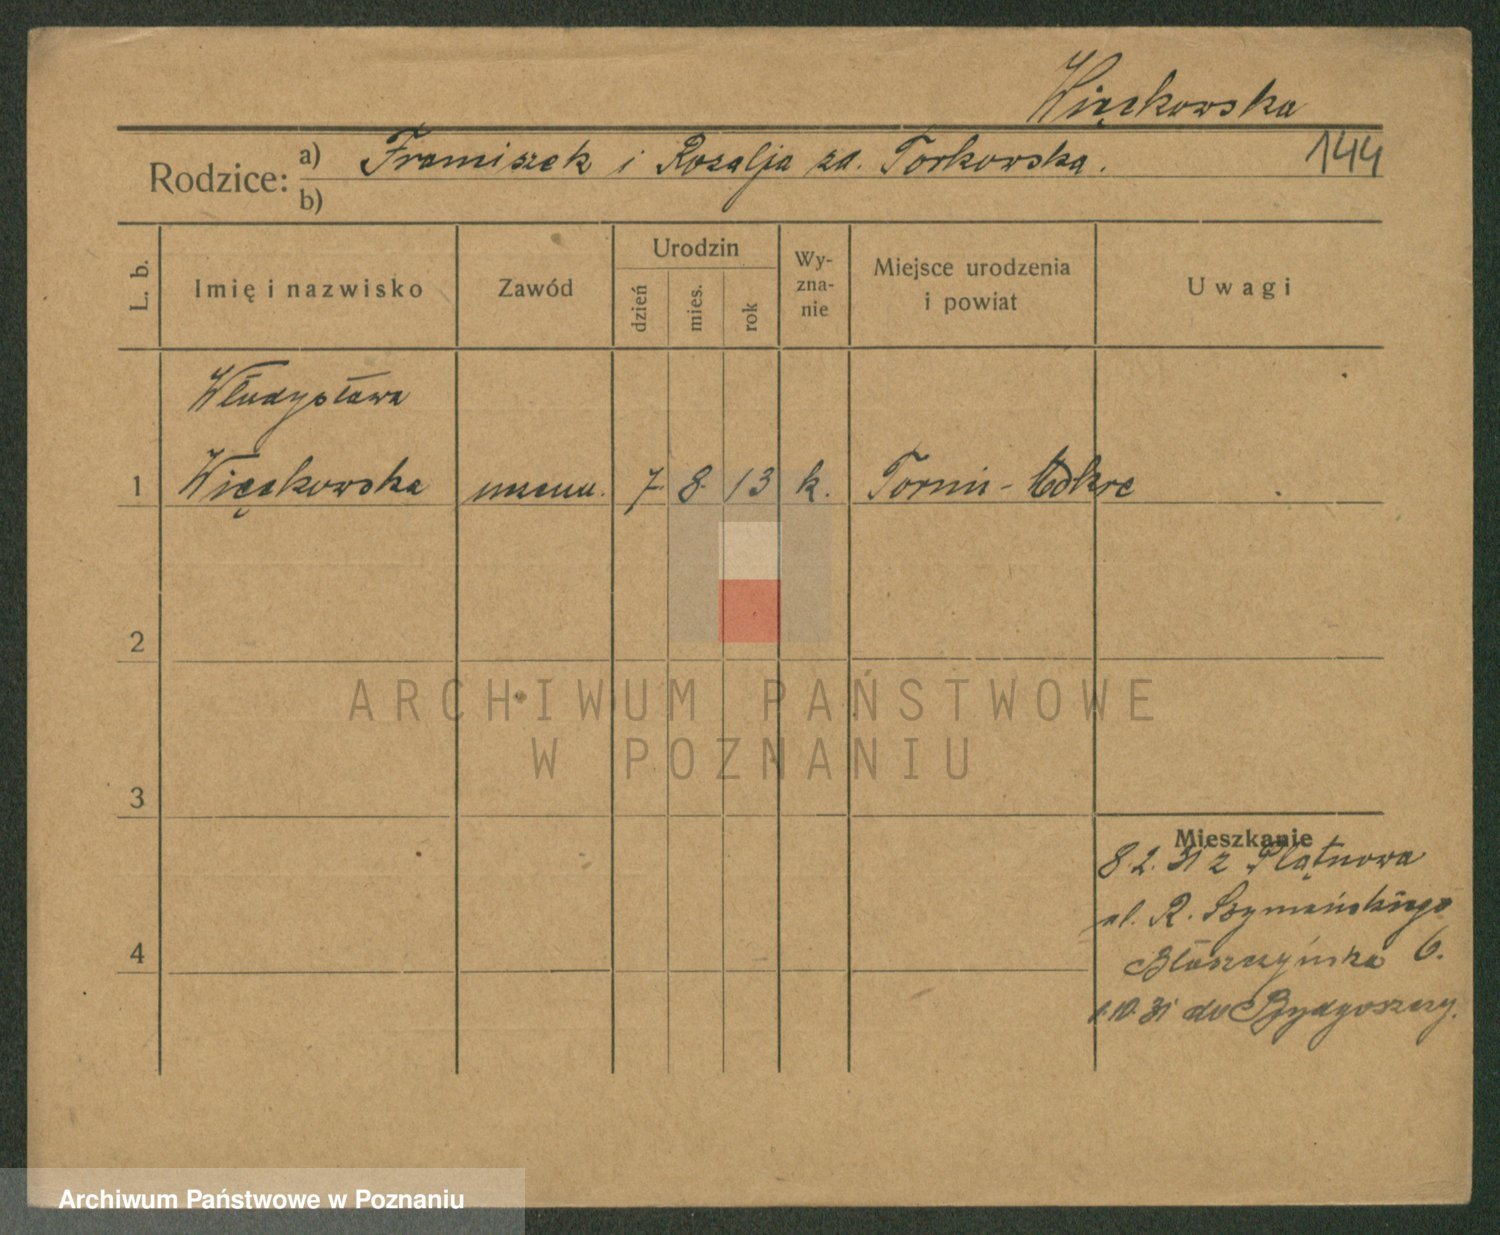 Więckowska
144
Rodzice: a) Franciszek i Rozalja zd. Torkowska.
b)
L. b.
Imię i nazwisko
Zawód
Urodzin
dzień
mies.
rok
Wy-
zna-
nie
Miejsce urodzenia
i powiat
Uwagi
Władysława
1 Więckowska 7. 8. 13 k. Toruń - Mokre
2
3
4
Mieszkanie
8.2.31 z Płątnowa
ul. R. Szymańskiego
6.
1.10.31 do Bydgoszczy.
ARCHIWUM PAŃSTWOWE
W POZNANIU
Archiwum Państwowe w Poznaniu